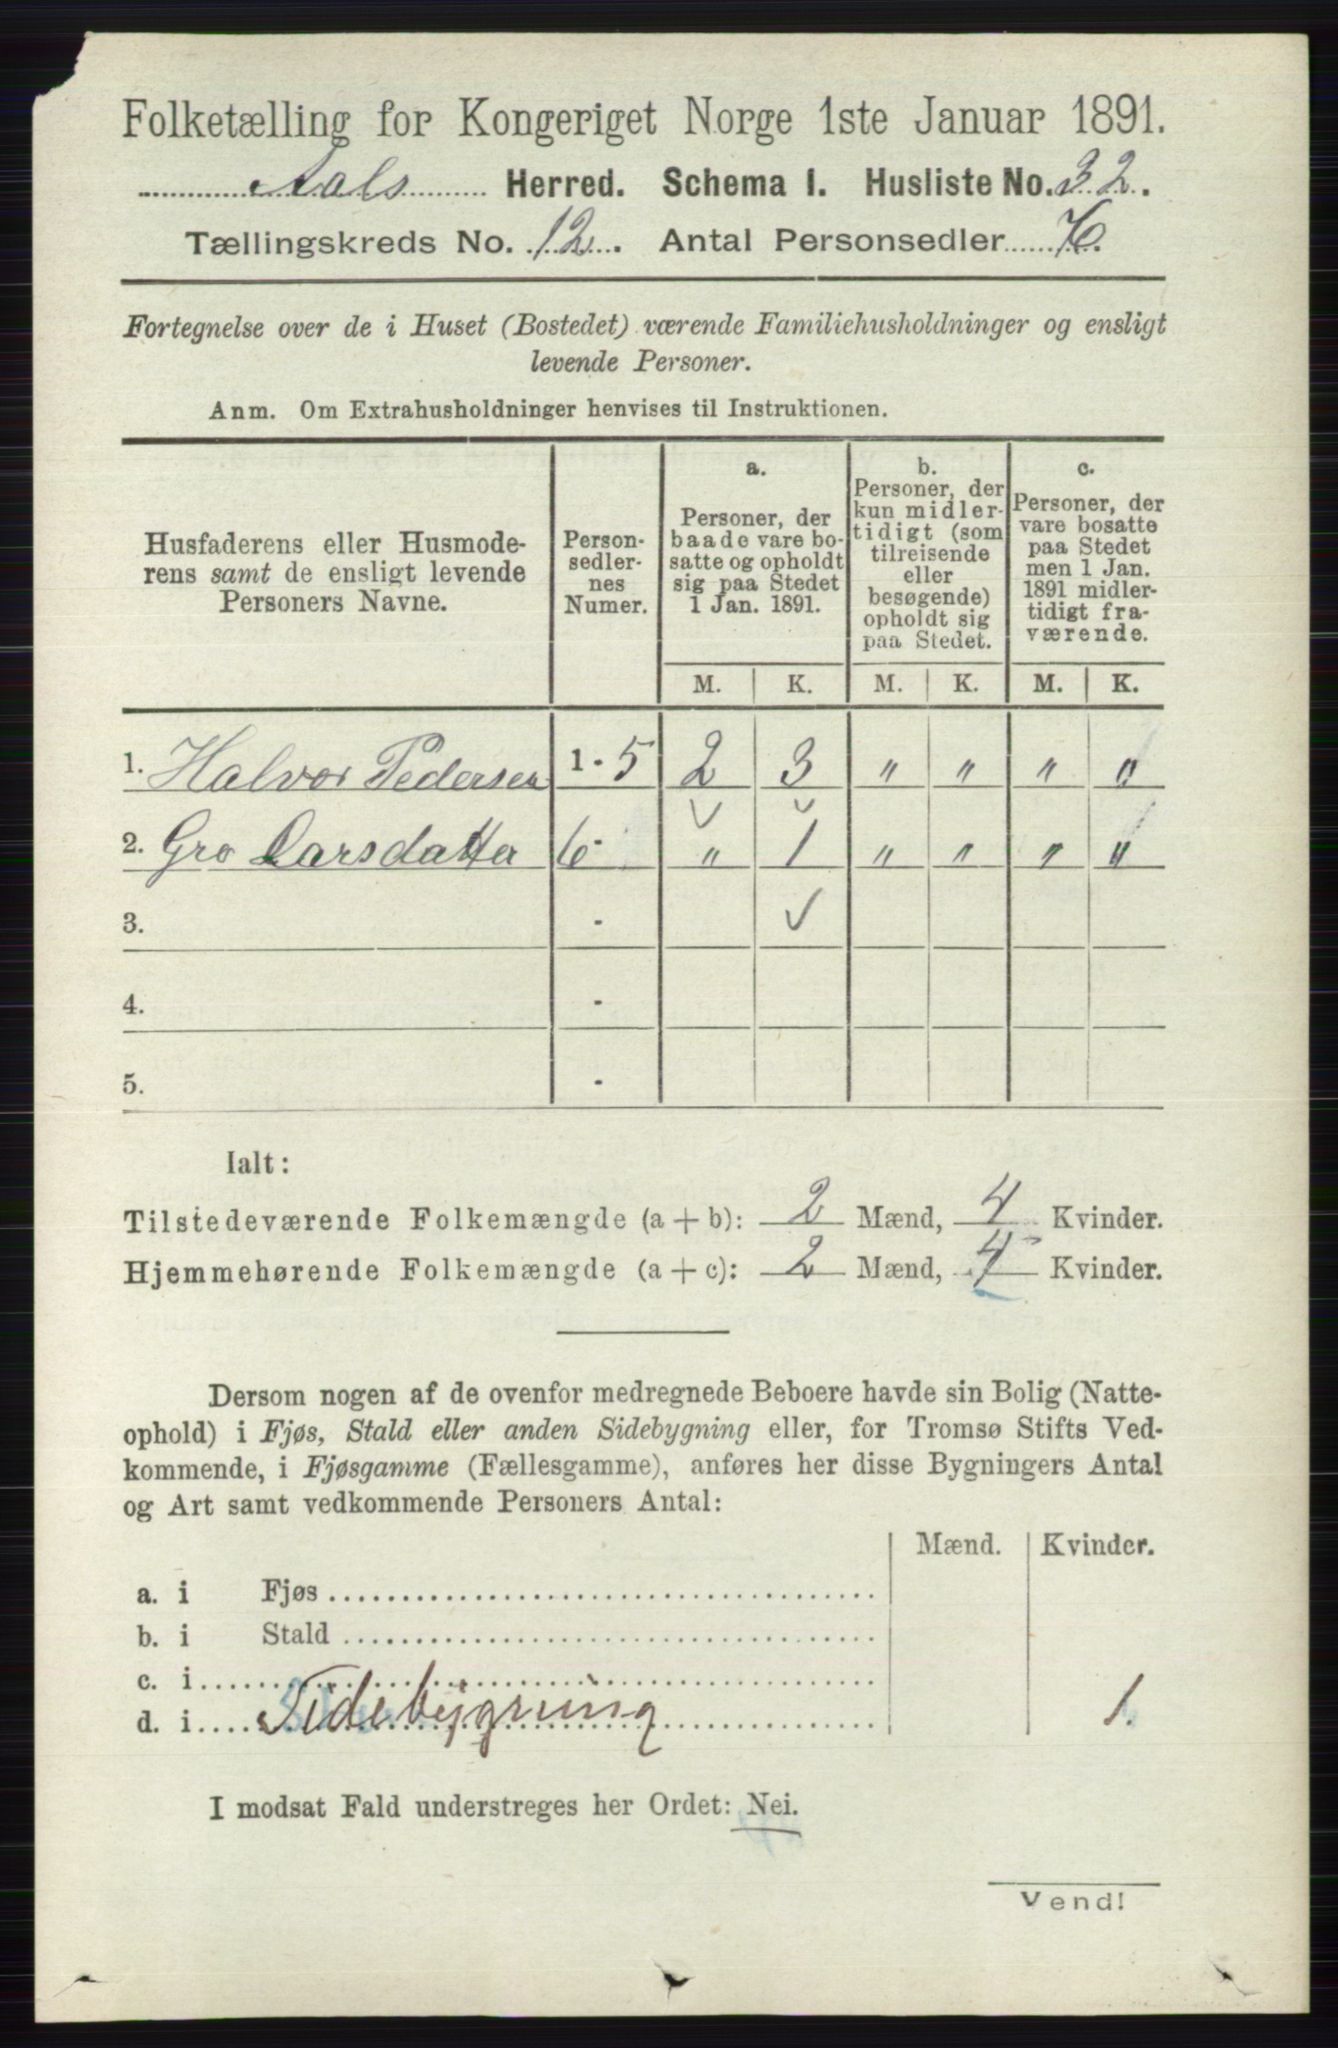 Folketælling for Kongeriget Norge 1ste Januar 1891.
Aals Herred. Schema I. Husliste No. 32.
Tællingskreds No. 12. Antal Personsedler 6.
Fortegnelse over de i Huset (Bostedet) værende Familiehusholdninger og ensligt
levende Personer.
Anm. Om Extrahusholdninger henvises til Instruktionen.
Husfaderens eller Husmode-
rens samt de ensligt levende
Personers Navne.
Person-
sedler-
nes
Numer.
a.
Personer, der
baade vare bo-
satte og opholdt
sig paa Stedet
1 Jan. 1891.
b.
Personer, der
kun midler-
tidigt (som
tilreisende
eller
besøgende)
opholdt sig
paa Stedet.
c.
Personer, der
vare bosatte
paa Stedet
men 1 Jan.
1891 midler-
tidigt fra-
værende.
M. K. M. K. M. K.
1. Halvor Pedersen 1 - 5 2 3 " " " "
2. Gro Larsdatter 6 - " 1 " " " "
3. -
4. -
5. -
Ialt:
Tilstedeværende Folkemængde (a + b): 2 Mænd, 4 Kvinder.
Hjemmehørende Folkemængde (a + c): 2 Mænd, 4 Kvinder.
Dersom nogen af de ovenfor medregnede Beboere havde sin Bolig (Natte-
ophold) i Fjøs, Stald eller anden Sidebygning eller, for Tromsø Stifts Ved-
kommende, i Fjøsgamme (Fællesgamme), anføres her disse Bygningers Antal
og Art samt vedkommende Personers Antal:
Mænd. Kvinder.
a. i Fjøs
b. i Stald
c. i
d. i Sidebygning 1.
I modsat Fald understreges her Ordet: Nei.
Vend!